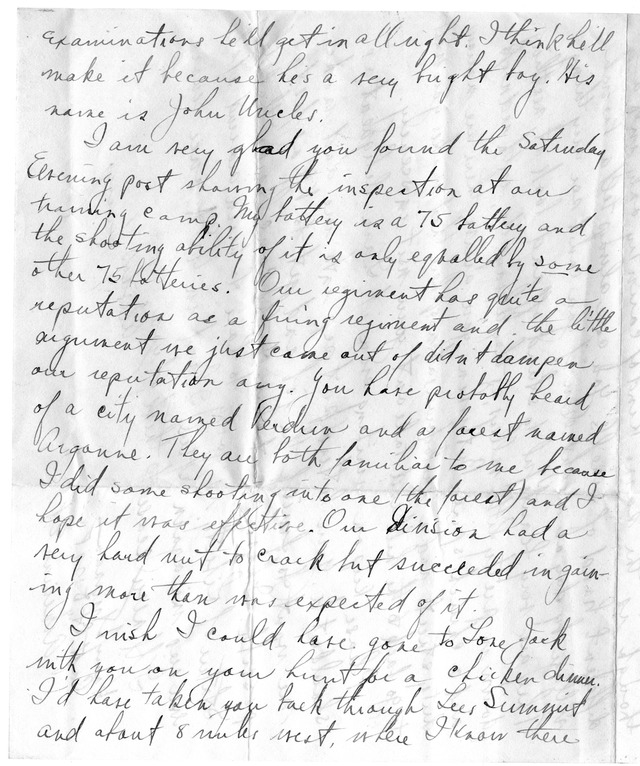 examinations he'll get in all right. I think he'll
make it because he's a very bright boy. His
name is John Uncles.
I am very glad you found the Saturday
Evening post showing the inspection at our
training camp. My battery is a 75 battery and
the shooting ability of it is only equalled by some
other 75 batteries. Our regiment has quite a
reputation as a firing regiment and the little
argument we just came out of didn't dampen
our reputation any. You have probably heard
of a city named Verdun and a forest named
Argonne. They are both familiar to me because
I did some shooting into one (the forest) and I
hope it was effective. Our Division had a
very hard nut to crack but succeeded in gain-
ing more than was expected of it.
I wish I could have gone to Lone Jack
with you on your hunt for a chicken dinner.
I'd have taken you back through Lees Summit
and about 8 miles west, where I know there